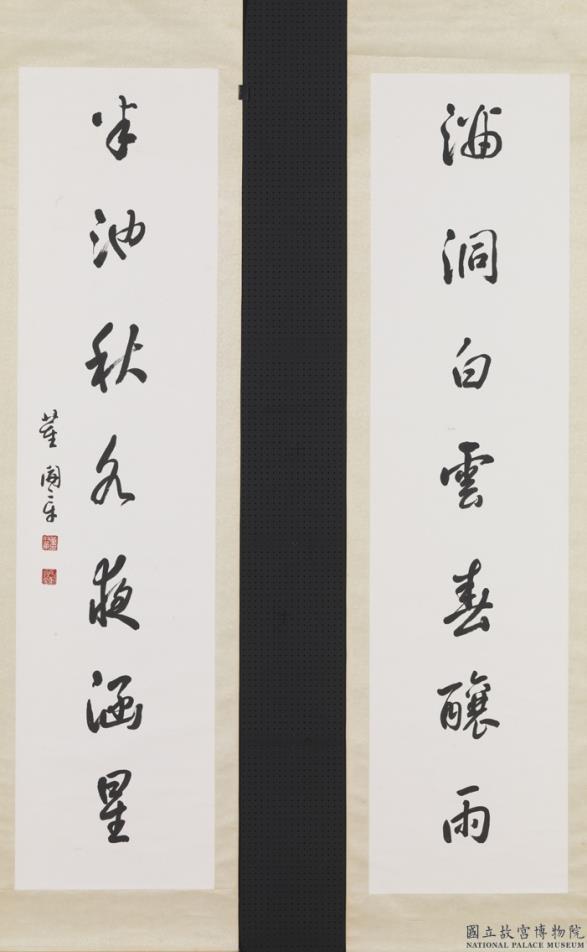 滿洞白雲春釀雨
半池秋水夜涵星
董開章
國立故宮博物院
NATIONAL PALACE MUSEUM